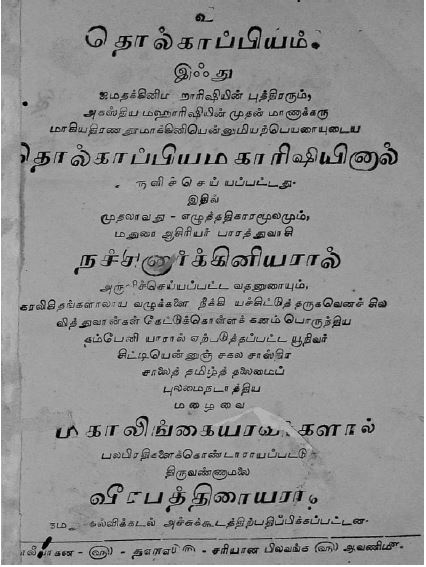 உ
தொல்காப்பியம்.
இஃது
ஜமதக்கினிம றாரிஷியின் புத்திரரும்,
அகஸ்திய மஹாரிஷியின் முதன் மாணாக்கரு
மாகியதிரணதூமாக்கினியென்னுமியற்பெயரையுடைய
தொல்காப்பியமகாரிஷியினால்
செய் யப்பட்டது.
இதில்
முதலாவது - எழுத்ததிகாரமூலமும்,
மதுரை ஆசிரியர் பாரத்துவாசி
நச்சினார்க்கினியரால்
அருளிச்செய்யப்பட்ட வதனுரையும்,
வழுக்களை நீக்கி யச்சிட்டுத் தருகவெனச் சில
வித்துவான்கள் கேட்டுக்கொள்ளக் கனம் பொருந்திய
கம்பேனி யாரால் ஏற்படுத்தப்பட்ட யூநிவர்
சிட்டியென்னுஞ் சகல சாஸ்திர
சாலைத் தமிழ்த் தலைமைப்
புலமைநடாத்திய
மழைவை
மகாலிங்கையரவர்களால்
பலபிரதிகளைக்கொண்டாராயப்பட்டு
திருவண்ணாமலை
வீரபத்திரையரது
கல்விக்கடல் அச்சுக்கூடத்திற்பதிப்பிக்கப்பட்டன.
சரியான பிலவங்க ௵ ஆவணிமீ